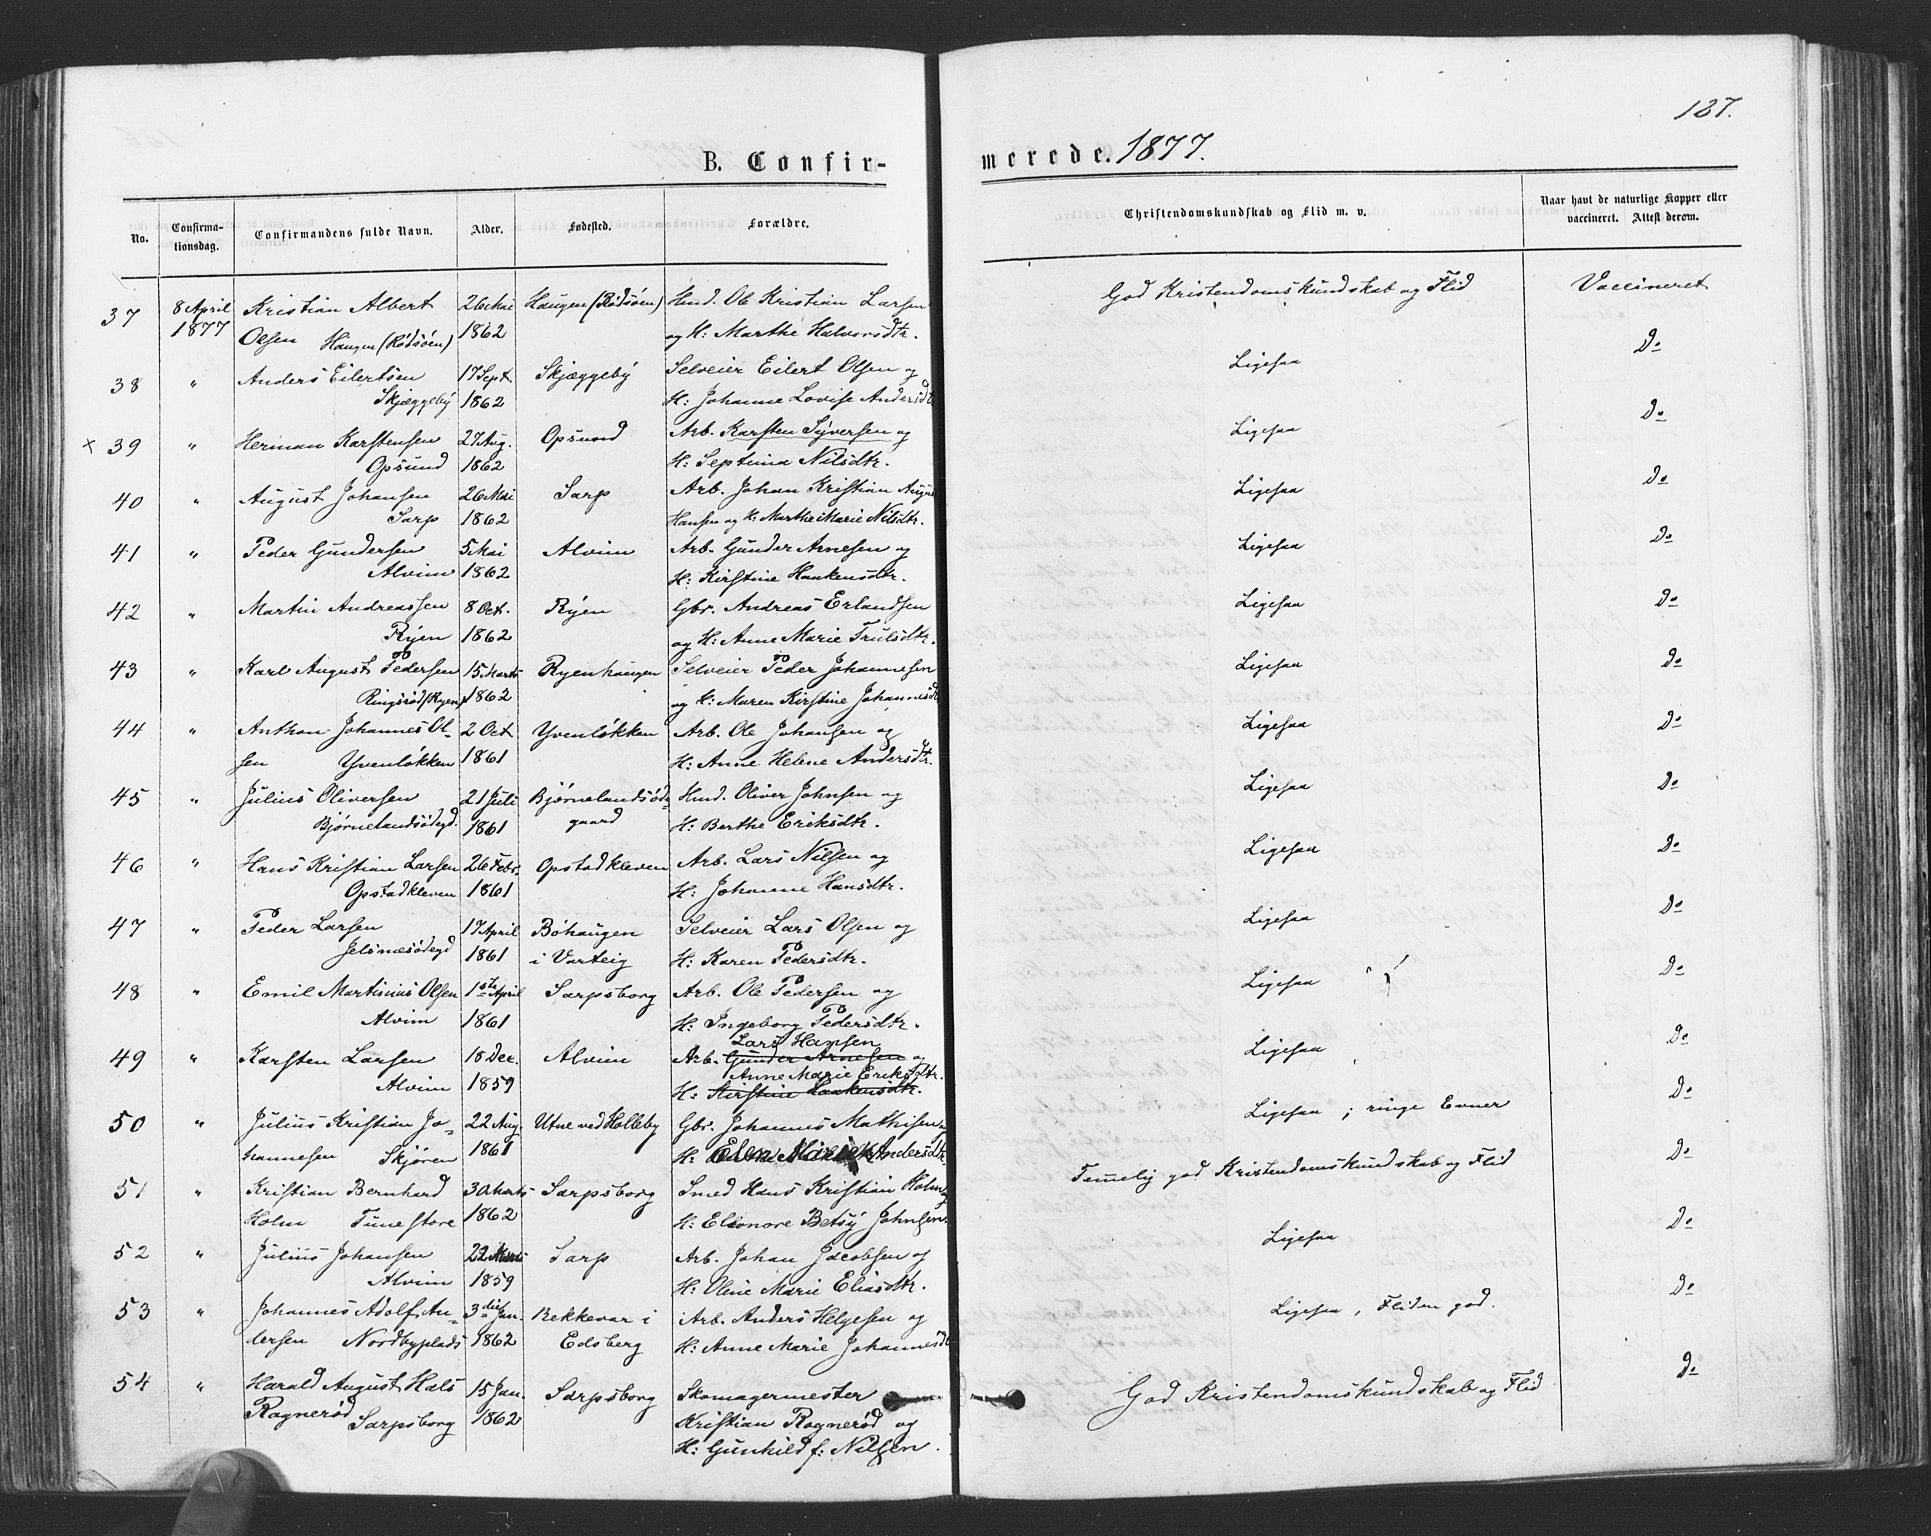 187.
B. Confir-
merede. 1877.
No.
Confirma-
tionsdag.
Confirmandens fulde Navn.
Alder.
Fødested.
Forældre.
Christendomskundskab og Flid m. v.
Naar havt de naturlige Kopper eller
vaccineret. Attest derom.
37 8 April Kristian Albert 26 Mai Haugen (Rødsøen) Hmd. Ole Kristian Larsen God Kristendomskundskab og Flid Vaccineret
1877 Olsen Haugen (Rødsøen) 1862 og H: Marthe Halvorsdtr.
38 " Anders Eilertsen 17 Sept. Skjæggeby Selveier Eilert Olsen og Ligesaa Do
Skjæggeby 1862 H: Johanne Lovise Andersdtr
x 39 " Herman Karstensen 27 Aug. Opsund Arb. Karsten Syversen og Ligesaa Do
Opsund 1862 H: Septima Nilsdtr.
40 " August Johansen 26 Mai Sarp Arb. Johan Kristian August Ligesaa Do
Sarp 1862 Hansen og H: Marthe Marie Nilsdtr.
41 " Peder Gundersen 5 Mai Alvim Arb. Gunder Arnesen og Ligesaa Do
Alvim 1862 H: Kirstine Haakensdtr.
42 " Martin Andreassen 8 Oct. Ryen Gbr. Andreas Erlandsen Ligesaa Do
Ryen 1862 og H: Anne Marie Trulsdtr.
43 " Karl August Pedersen 15 Marts Ryenhaugen Selveier Peder Johannesen Ligesaa Do
Ringsrød (Ryen) 1862 og H: Maren Kirstine Johannesdtr
44 " Anthon Johannes Ol- 2 Oct Yvenløkken Arb. Ole Johansen og Ligesaa Do
sen Yvenløkken 1861 H: Anne Helene Andersdtr.
45 " Julius Oliversen 21 Juli Bjørnelandsøde- Hmd. Oliver Johnsen og Ligesaa Do
Bjørnelandsødegd. 1861 gaard H: Berthe Eriksdtr.
46 " Hans Kristian Larsen 26 Febr. Opstadkleven Arb. Lars Nilsen og Ligesaa Do
Opstadkleven 1861 H: Johanne Hansdtr.
47 " Peder Larsen 17 April Bøhaugen Selveier Lars Olsen og Ligesaa Do
Jelsnesødegd 1861 i Varteig H: Karen Pedersdtr.
48 " Emil Martinius Olsen 1ste April Sarpsborg Arb. Ole Pedersen og Ligesaa Do
Alvim 1861 H: Ingeborg Pedersdtr.
Lars Hansen
49 " Karsten Larsen 18 Dec. Alvim Arb. Gunder Arnesen og Ligesaa Do
Anne Marie Eriksdtr.
Alvim 1859 H: Kirstine Haakensdtr.
50 " Julius Kristian Jo- 22 Aug. Utne ved Holleby Gbr. Johannes Mathisen og Ligesaa ; ringe Evner Do
hannesen Skjøren 1861 H: Elen Andersdtr.
51 " Kristian Bernhard 30 Marts Sarpsborg Smed Hans Kristian Holm og Temmelig god Kristendomskundskab og Flid Do
Holm Tune store 1862 H: Eleonore Betsy Johnsen
52 " Julius Johansen 22 Marts Sarp Arb. Johan Jacobsen og Ligesaa Do
Alvim 1859 H: Oline Marie Eliasdtr.
53 " Johannes Adolf An- 3die Jan. Bekkevar i Arb. Anders Helgesen og Ligesaa, Fliden god. Do
dersen Nordbyplads 1862 Edsberg H: Anne Marie Johannesdtr
54 " Harald August Hals 15 Jan. Sarpsborg Skomagermester God Kristendomskundskab og Flid Do
Ragnerød Sarpsborg 1862 Kristian Ragnerød og
H: Gunhild f: Nilsen.